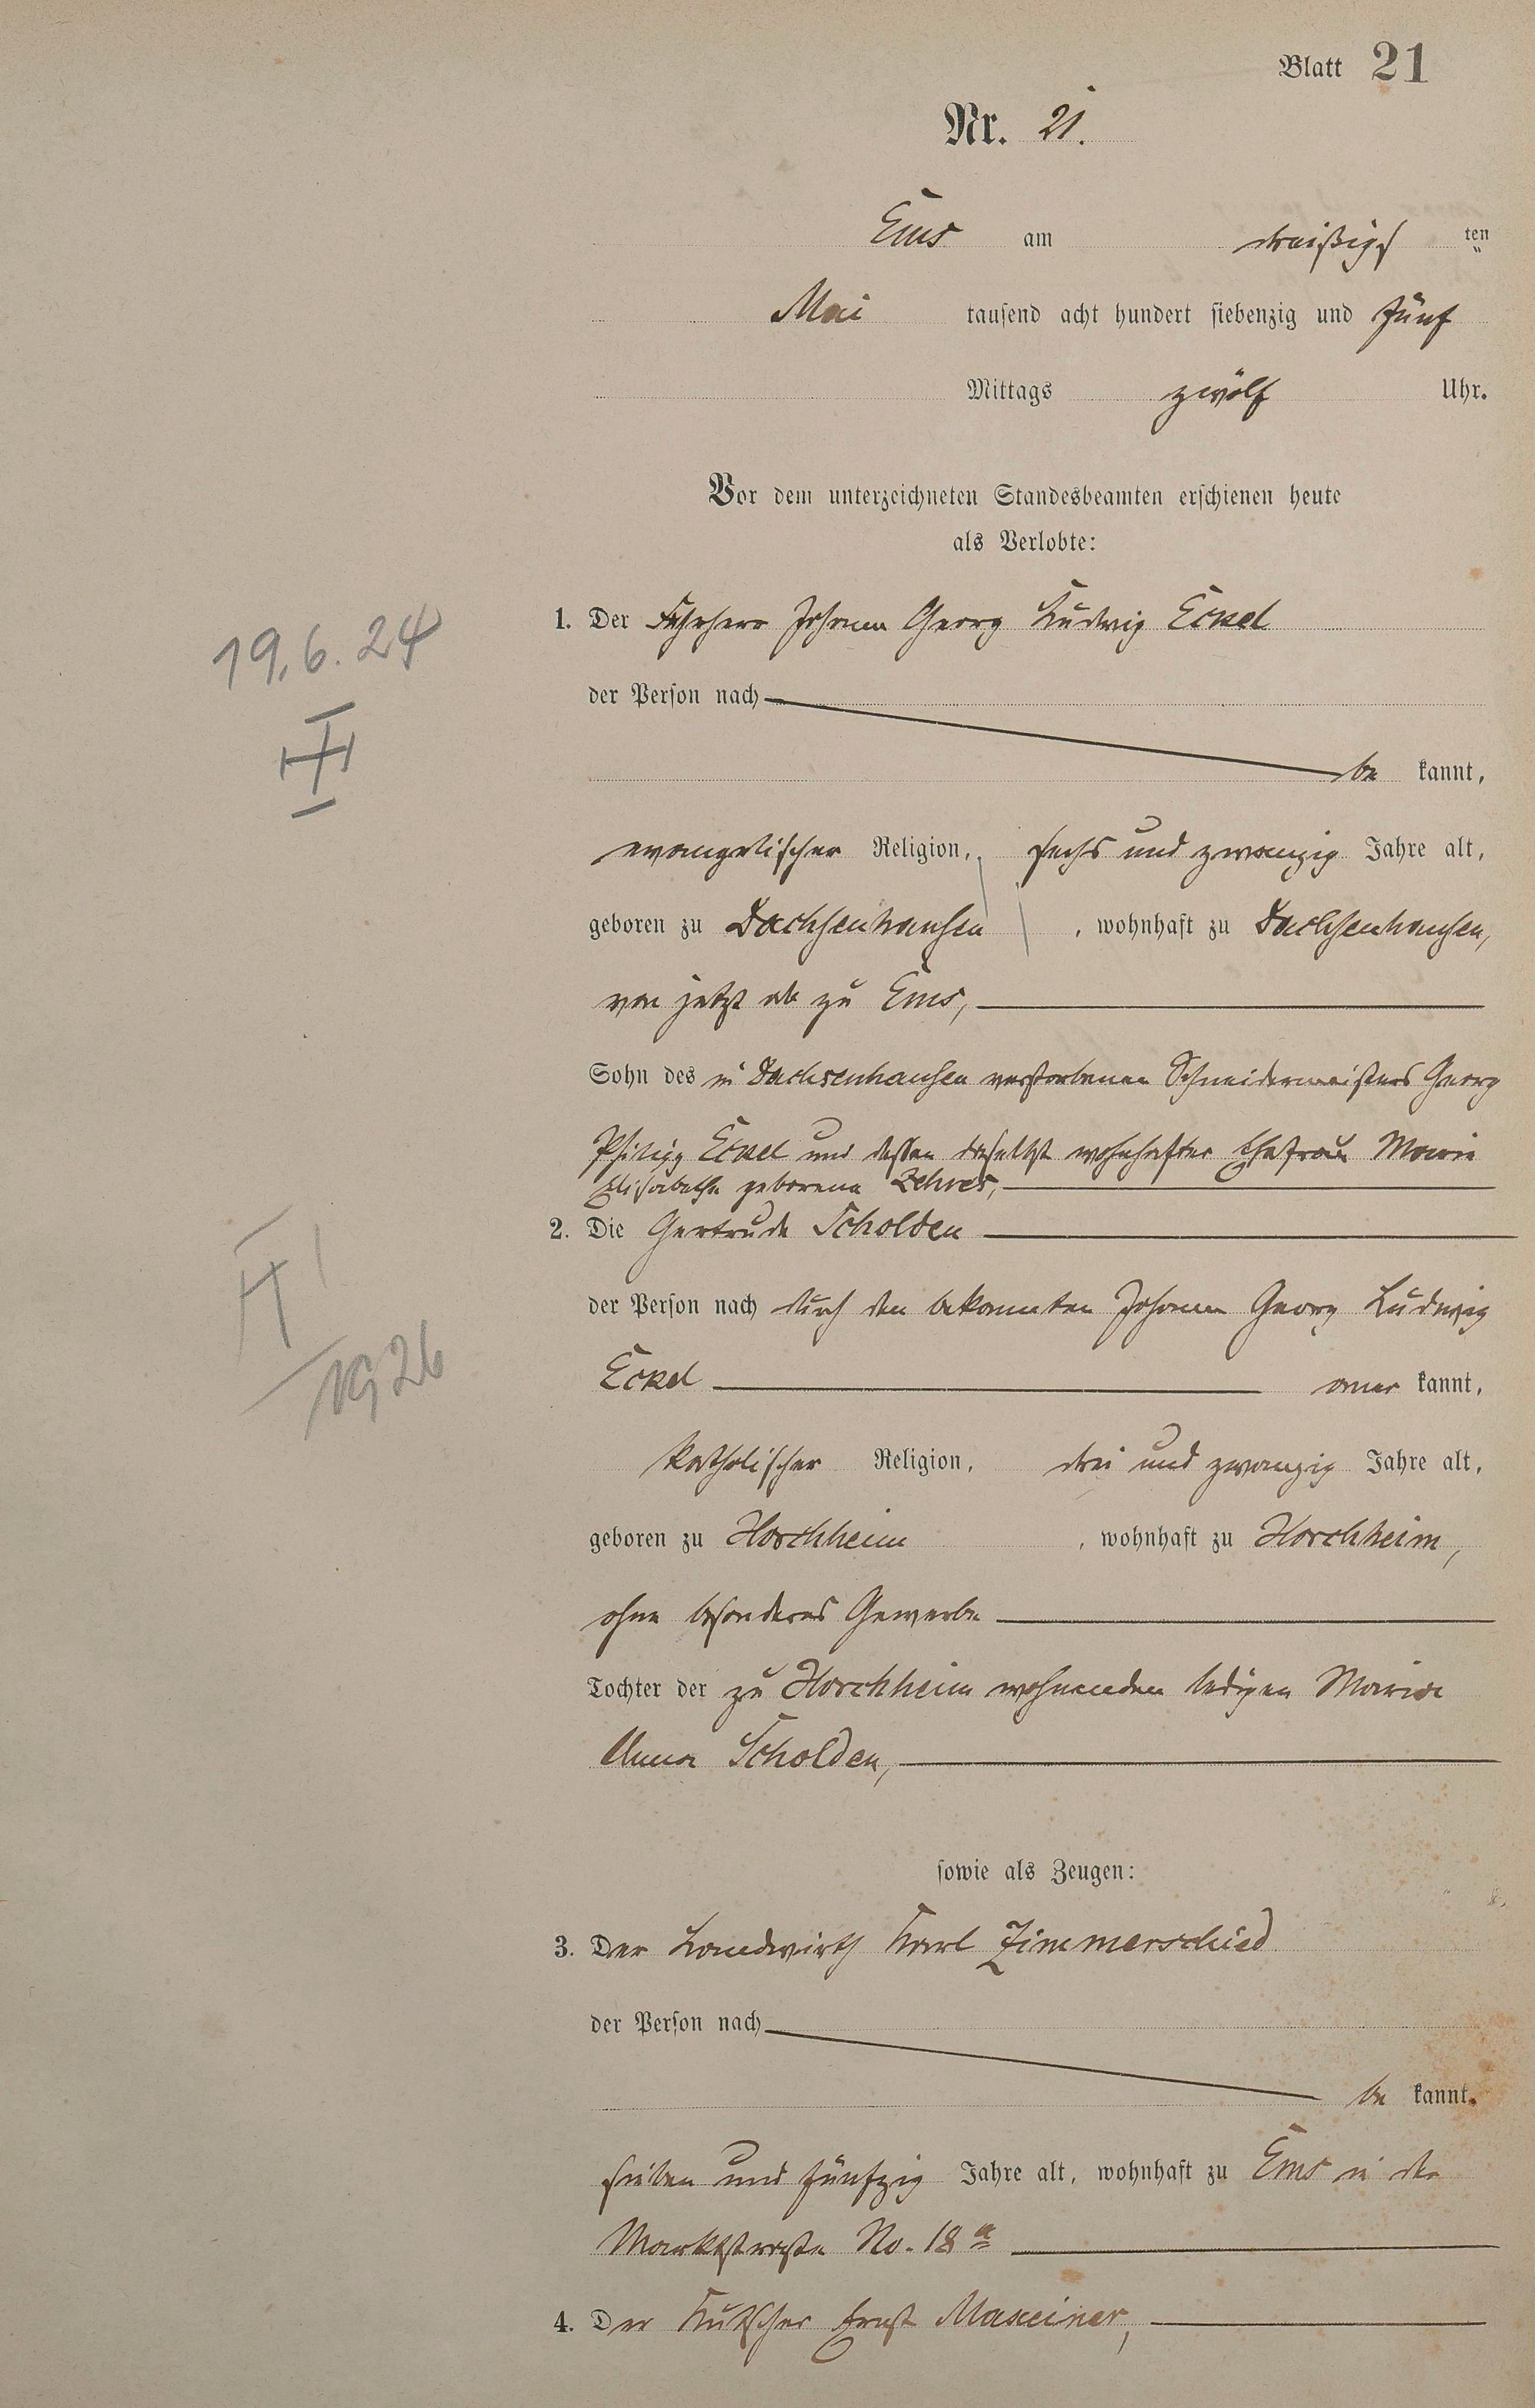 Blatt 21
Nr. 21.
Ems am dreißigs ten
Mai tausend acht hundert siebenzig und fünf
Mittags zwölf Uhr.
Vor dem unterzeichneten Standesbeamten erschienen heute
als Verlobte:
1. Der Johann Georg Ludwig Eckel
der Person nach
be kannt,
evangelischer Religion, sechs und zwanzig Jahre alt,
geboren zu Dachsenhausen, wohnhaft zu Dachsenhausen,
von jetzt ab zu Ems,
Sohn des in Dachsenhausen verstorbenen Schneidermeisters Georg
Philipp Eckel und dessen daselbst wohnhafter Ehefrau Marie
Elisabethe geborene Zehres,
2. Die Gertrude Scholden
der Person nach durch den bekannten Johann Georg Ludwig
Eckel aner kannt,
katholischer Religion, drei und zwanzig Jahre alt,
geboren zu Horchheim, wohnhaft zu Horchheim,
ohne besonderes Gewerbe
Tochter der zu Horchheim wohnenden ledigen Maria
Anna Scholden,
sowie als Zeugen:
3. Der Landwirth Karl Zimmerschied
der Person nach
be kannt.
sieben und fünfzig Jahre alt, wohnhaft zu Ems in der
Marktstraße No. 18 a
4. Der Kutscher Ernst Maxeiner,
19.6.24
II
1926